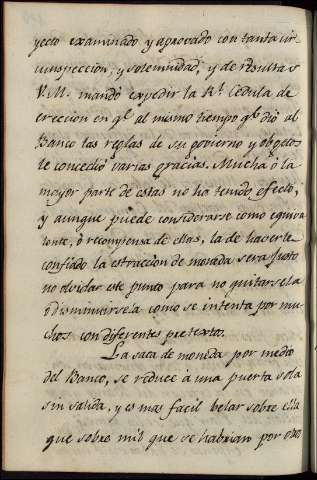 yecto examinado y aprovado con tanta cir-
cunspeccion, y solemnidad, y de resultas
V.M. mandó expedir la Rl. Cedula de
ereccion en q.e al mismo tiempo q.e dió al
Banco las reglas de su govierno y objetos
le concedió varias gracias. Mucha ó la
mayor parte de estas no ha tenido efecto,
y aunque puede considerarse como equiva
lente, ó recompensa de ellas, la de haverle
confiado la estraccion de moneda será justo
no olvidar este punto para no quitarsela
o disminuirsela como se intenta por mu-
chos con diferentes pretextos.
La saca de moneda por medio
del Banco, se reduce à una puerta sola
sin salida, y es mas facil belar sobre ella
que sobre mil que se habrian por otro